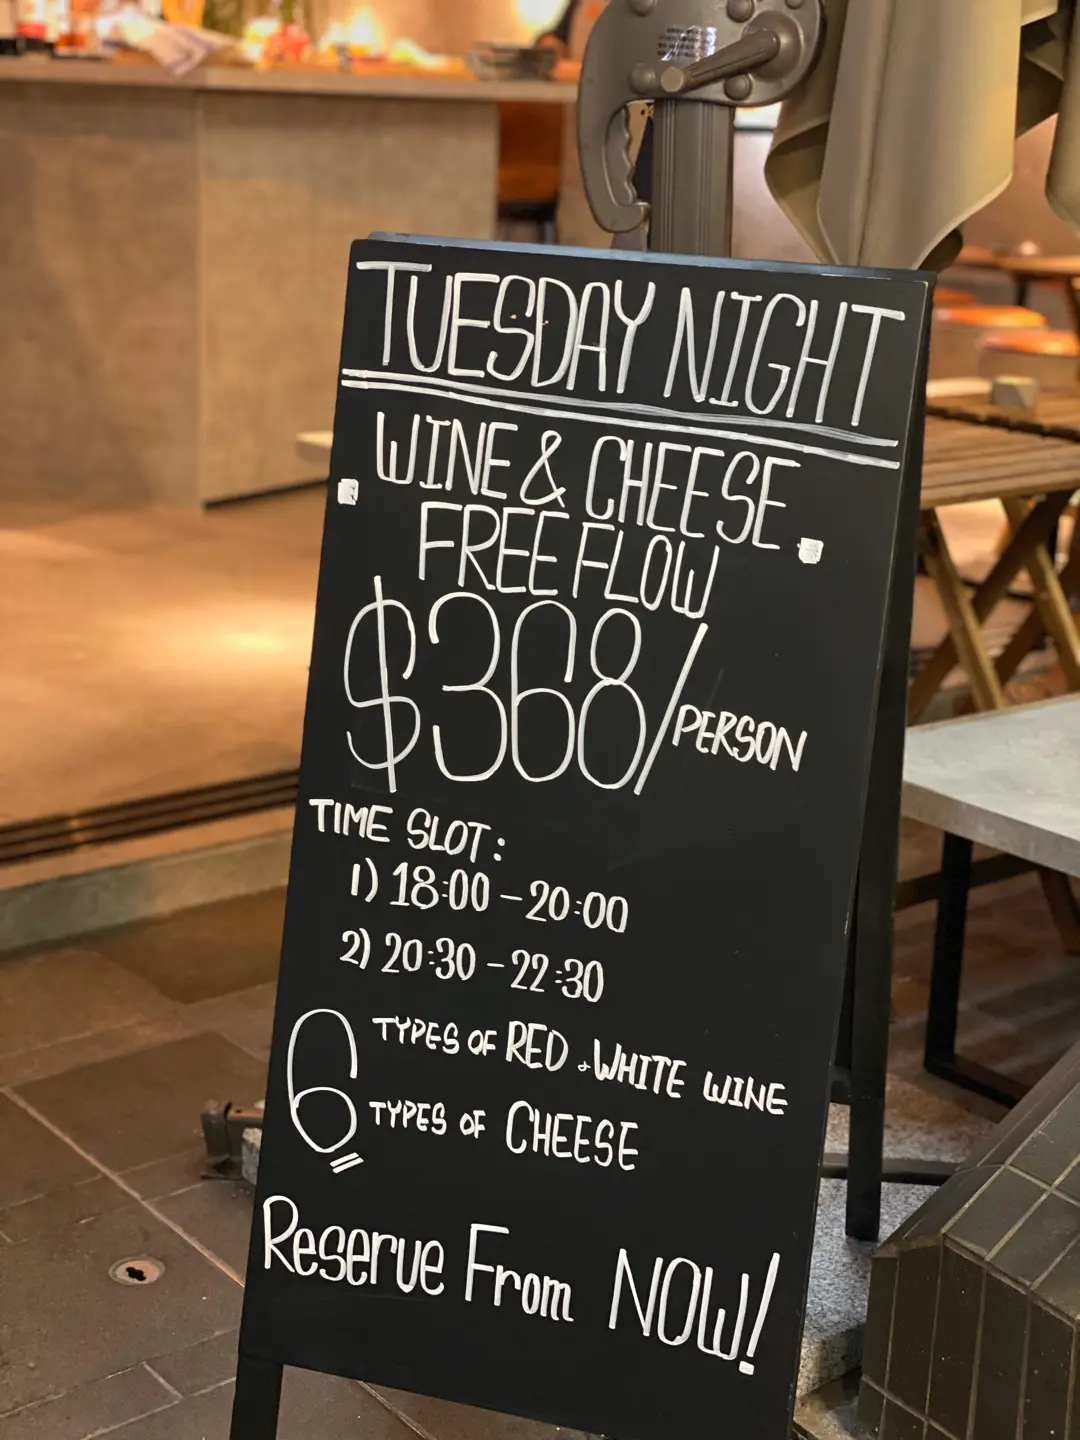 TUESDAY NIGHT
WINE & CHEESE
FREE FLOW
$368/PERSON
TIME SLOT:
1) 18:00 - 20:00
2) 20:30 - 22:30
6 TYPES OF RED & WHITE WINE
TYPES OF CHEESE
Reserve From NOW!